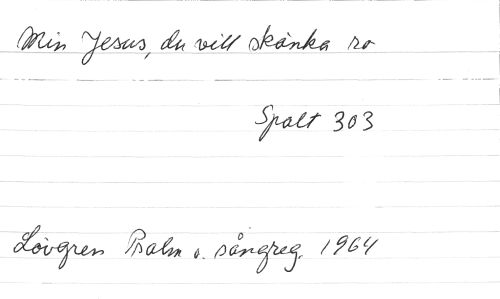 Min Jesus, du vill skänka ro
Spalt 303
Lövgren Psalm o. sångreg. 1964